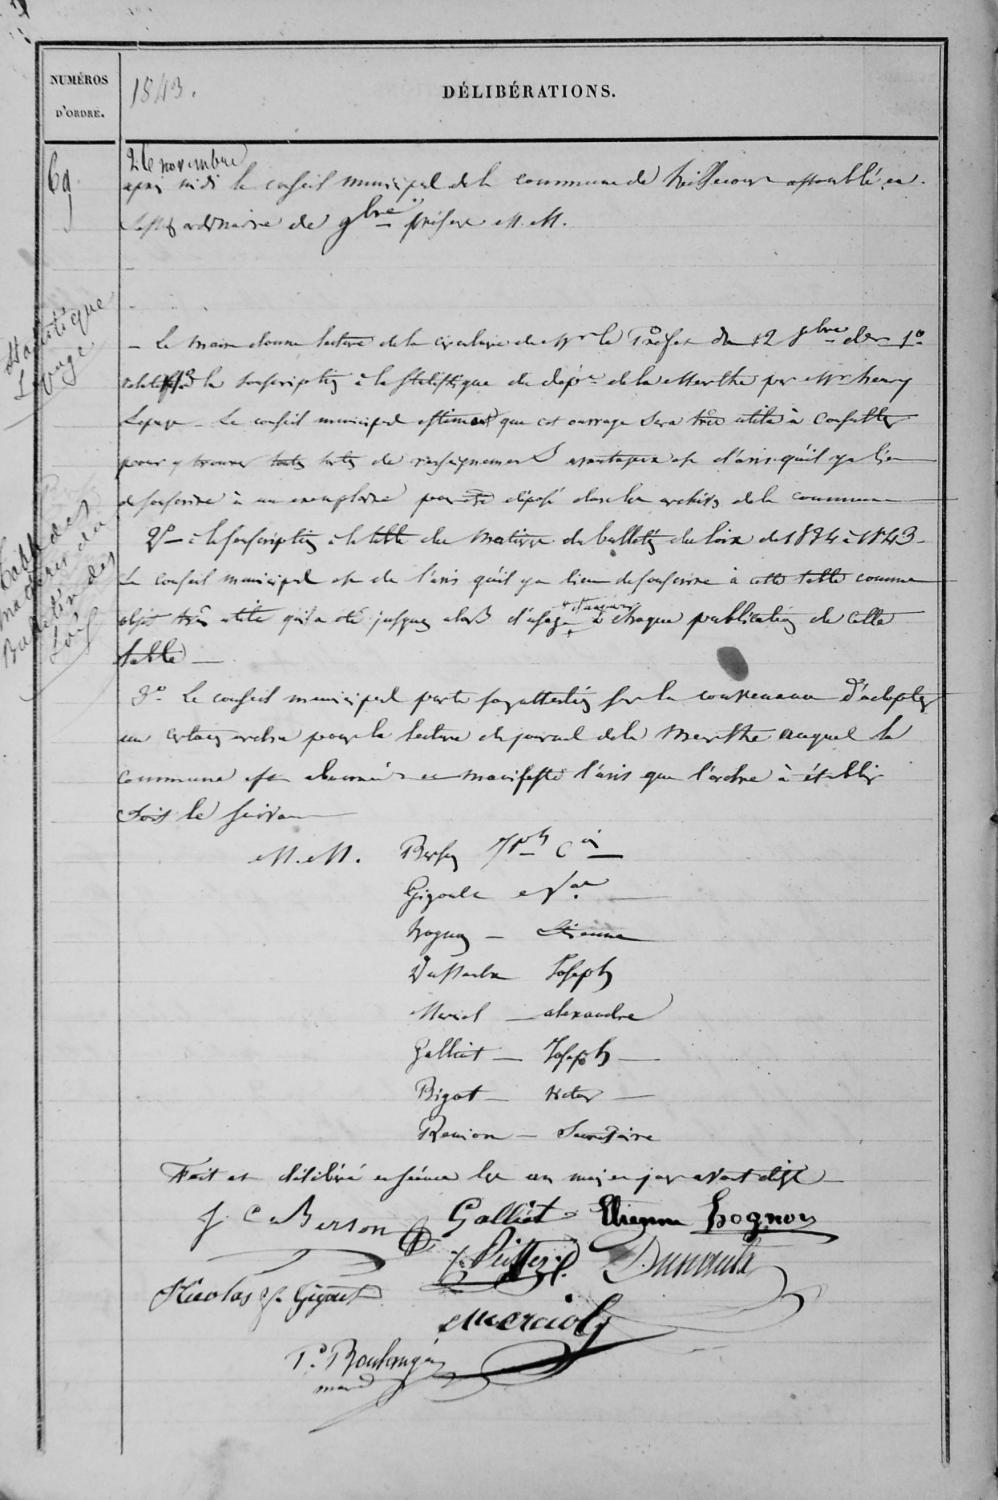 NUMÉROS
D'ORDRE.
1843.
DÉLIBÉRATIONS.
69
26 novembre
après midi le conseil municipal de la commune de assemblé en
ordinaire de 9bre présens M.M.
Statistique
Lepage
- Le maire donne lecture de la circulaire de Mr le Préfet du 12 8bre der 1o
la souscription à la statistique du dépt de la Meurthe par Mr henry
Lepage - Le conseil municipal estimant que cet ouvrage sera très utile à consulter
pour y trouver de renseignements avantageux est d'avis qu'il y a lieu
de souscrire à un exemplaire pour déposé dans les archives de la commune
Table des
matières du
Bulletin des
Lois
2o à la souscription à la table des matières du bulletin des lois de 1834 à 1843 -
Le conseil municipal est de l'avis qu'il y a lieu de souscrire à cette table comme
objet très utile qu'il a été jusqu'alors d'usage à chaque publication de cette
table -
3o Le conseil municipal porte son attention sur la convenance d'adopter
un certain ordre pour la lecture du journal de la Meurthe auquel la
commune est abonnée et manifeste l'avis que l'ordre à établir
soit le suivant
M.M. Berson Jph
Gigout
hognon - Etienne
Joseph
Merciol - alexandre
Galliot - Joseph -
Bigot - victor -
Remion - Secrétaire
Fait et délibéré en séance les an mois et jour avant dits -
J. C Berson Galliot Etienne hognon
Nicolas Gigout
Merciol